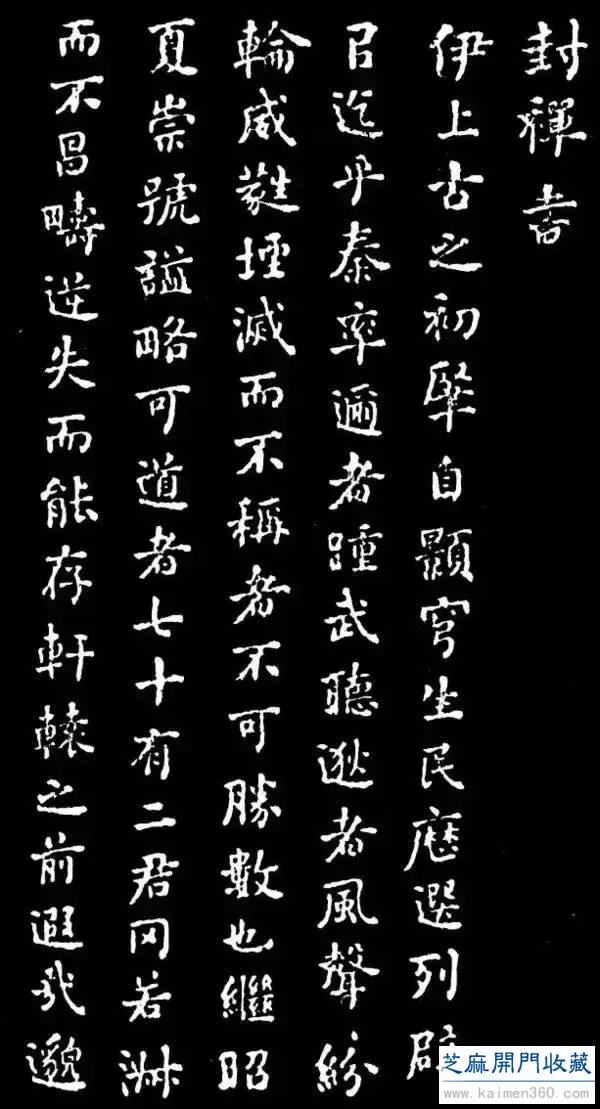 封禪書
伊上古之初肇自顥穹生民歷選列辟
㠯迄乎秦率邇者踵武聽逖者風聲紛
輪威蕤堙滅而不稱者不可勝數也繼昭
夏崇號謚略可道者七十有二君罔若淑
而不昌疇逆失而能存軒轅之前遐哉邈
芝麻開門收藏
www.kaimen360.com